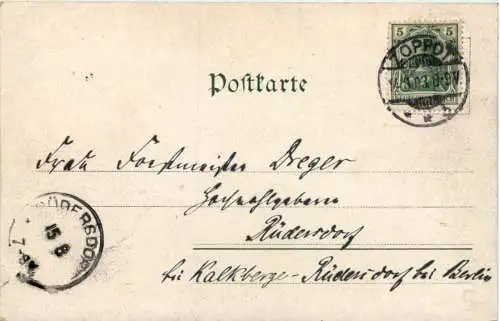 5 5
ZOPPOT
Postkarte
Frau Forstmeister Dreger
Hochwohlgeboren
Rüdersdorf
bei Kalkberge-Rüdersdorf bei Berlin
RÜDERSDO
15 8